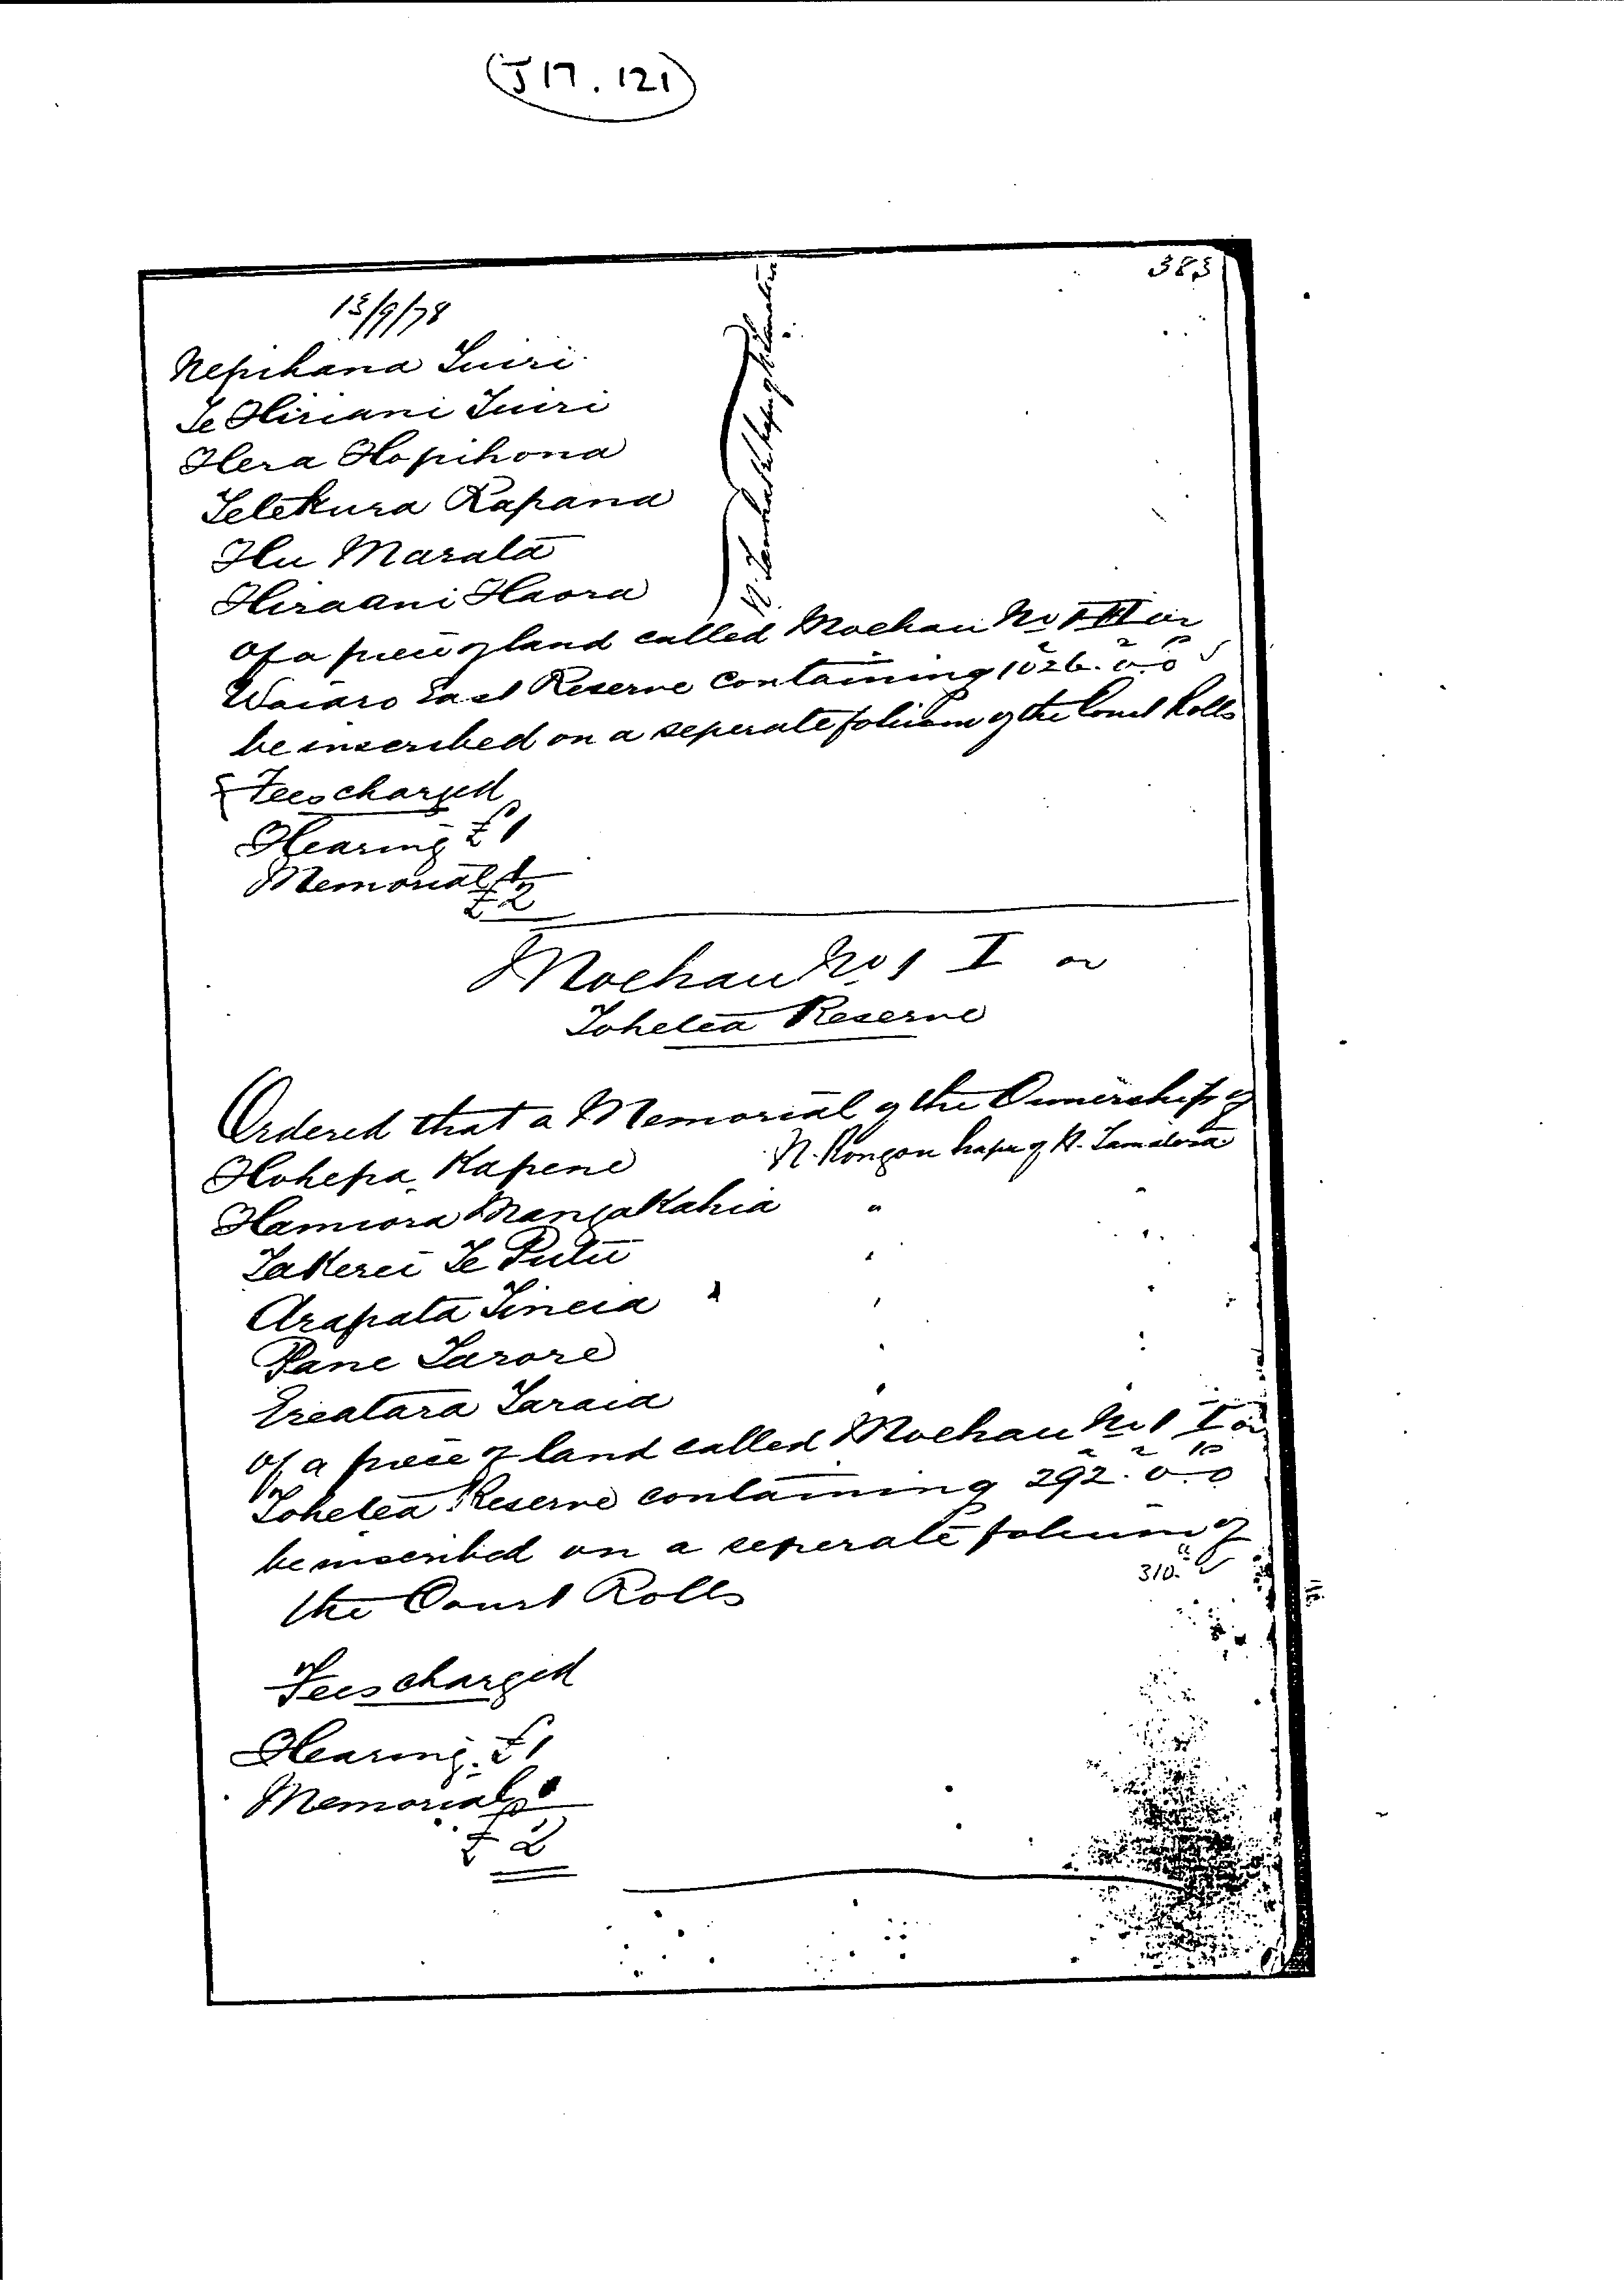 (J 17. 121)
383
13/9/78
Nepihana Tuiri
Te Hiriani Tuiri
Hera Hopihona
Tetekura Rapana
Hu Marata
Hiraani Haora
of a piece of land called Moehau No 1 or
Waiaro East Reserve containing 1026. 0. 0
be inscribed on a seperate folium of the Court Rolls
Fees charged
Hearing £1
Memorial 1
£2
Moehau No 1 I or
Tohetea Reserve
Ordered that a Memorial of the Ownership of
Hohepa Kapene N. Rongou hapu of N. Tamatera
Hamiora Mangakahia "
Takerei Te Putu "
Arapata Tineia "
Pane Tarore "
Ereatara Taraia "
of a piece of land called Moehau No 1 I or
Tohetea Reserve containing 292. 0. 0
be inscribed on a seperate folium of
310.
the Court Rolls
Fees charged
Hearing. £1
Memorial 1
£2